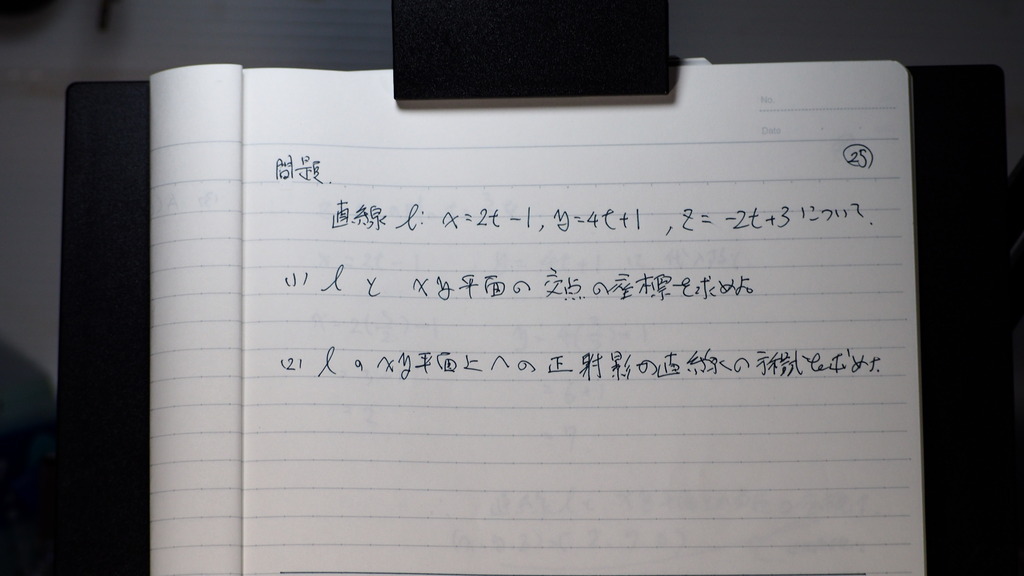 No.
Date
㉕
問題.
直線 l: x=2t-1, y=4t+1, z=-2t+3 について.
(1) l と xy平面の交点の座標を求めよ
(2) l の xy平面上への正射影の直線の方程式を求めよ.